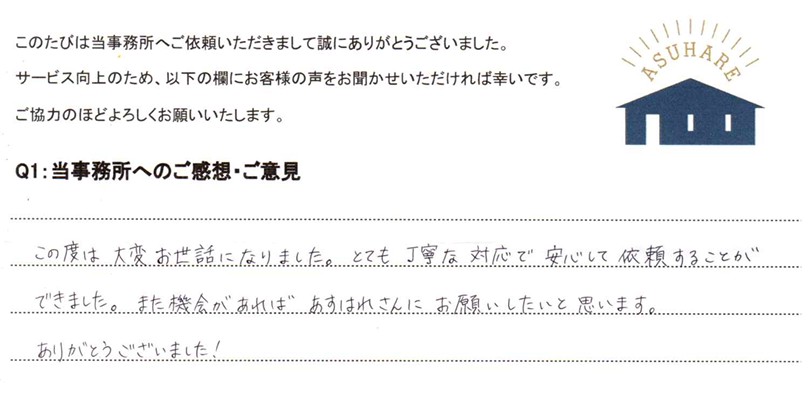 このたびは当事務所へご依頼いただきまして誠にありがとうございました。
サービス向上のため、以下の欄にお客様の声をお聞かせいただければ幸いです。
ご協力のほどよろしくお願いいたします。
ASUHARE
Q1:当事務所へのご感想・ご意見
この度は大変お世話になりました。とても丁寧な対応で安心して依頼することが
できました。また機会があれば あすはれさんに お願いしたいと思います。
ありがとうございました!